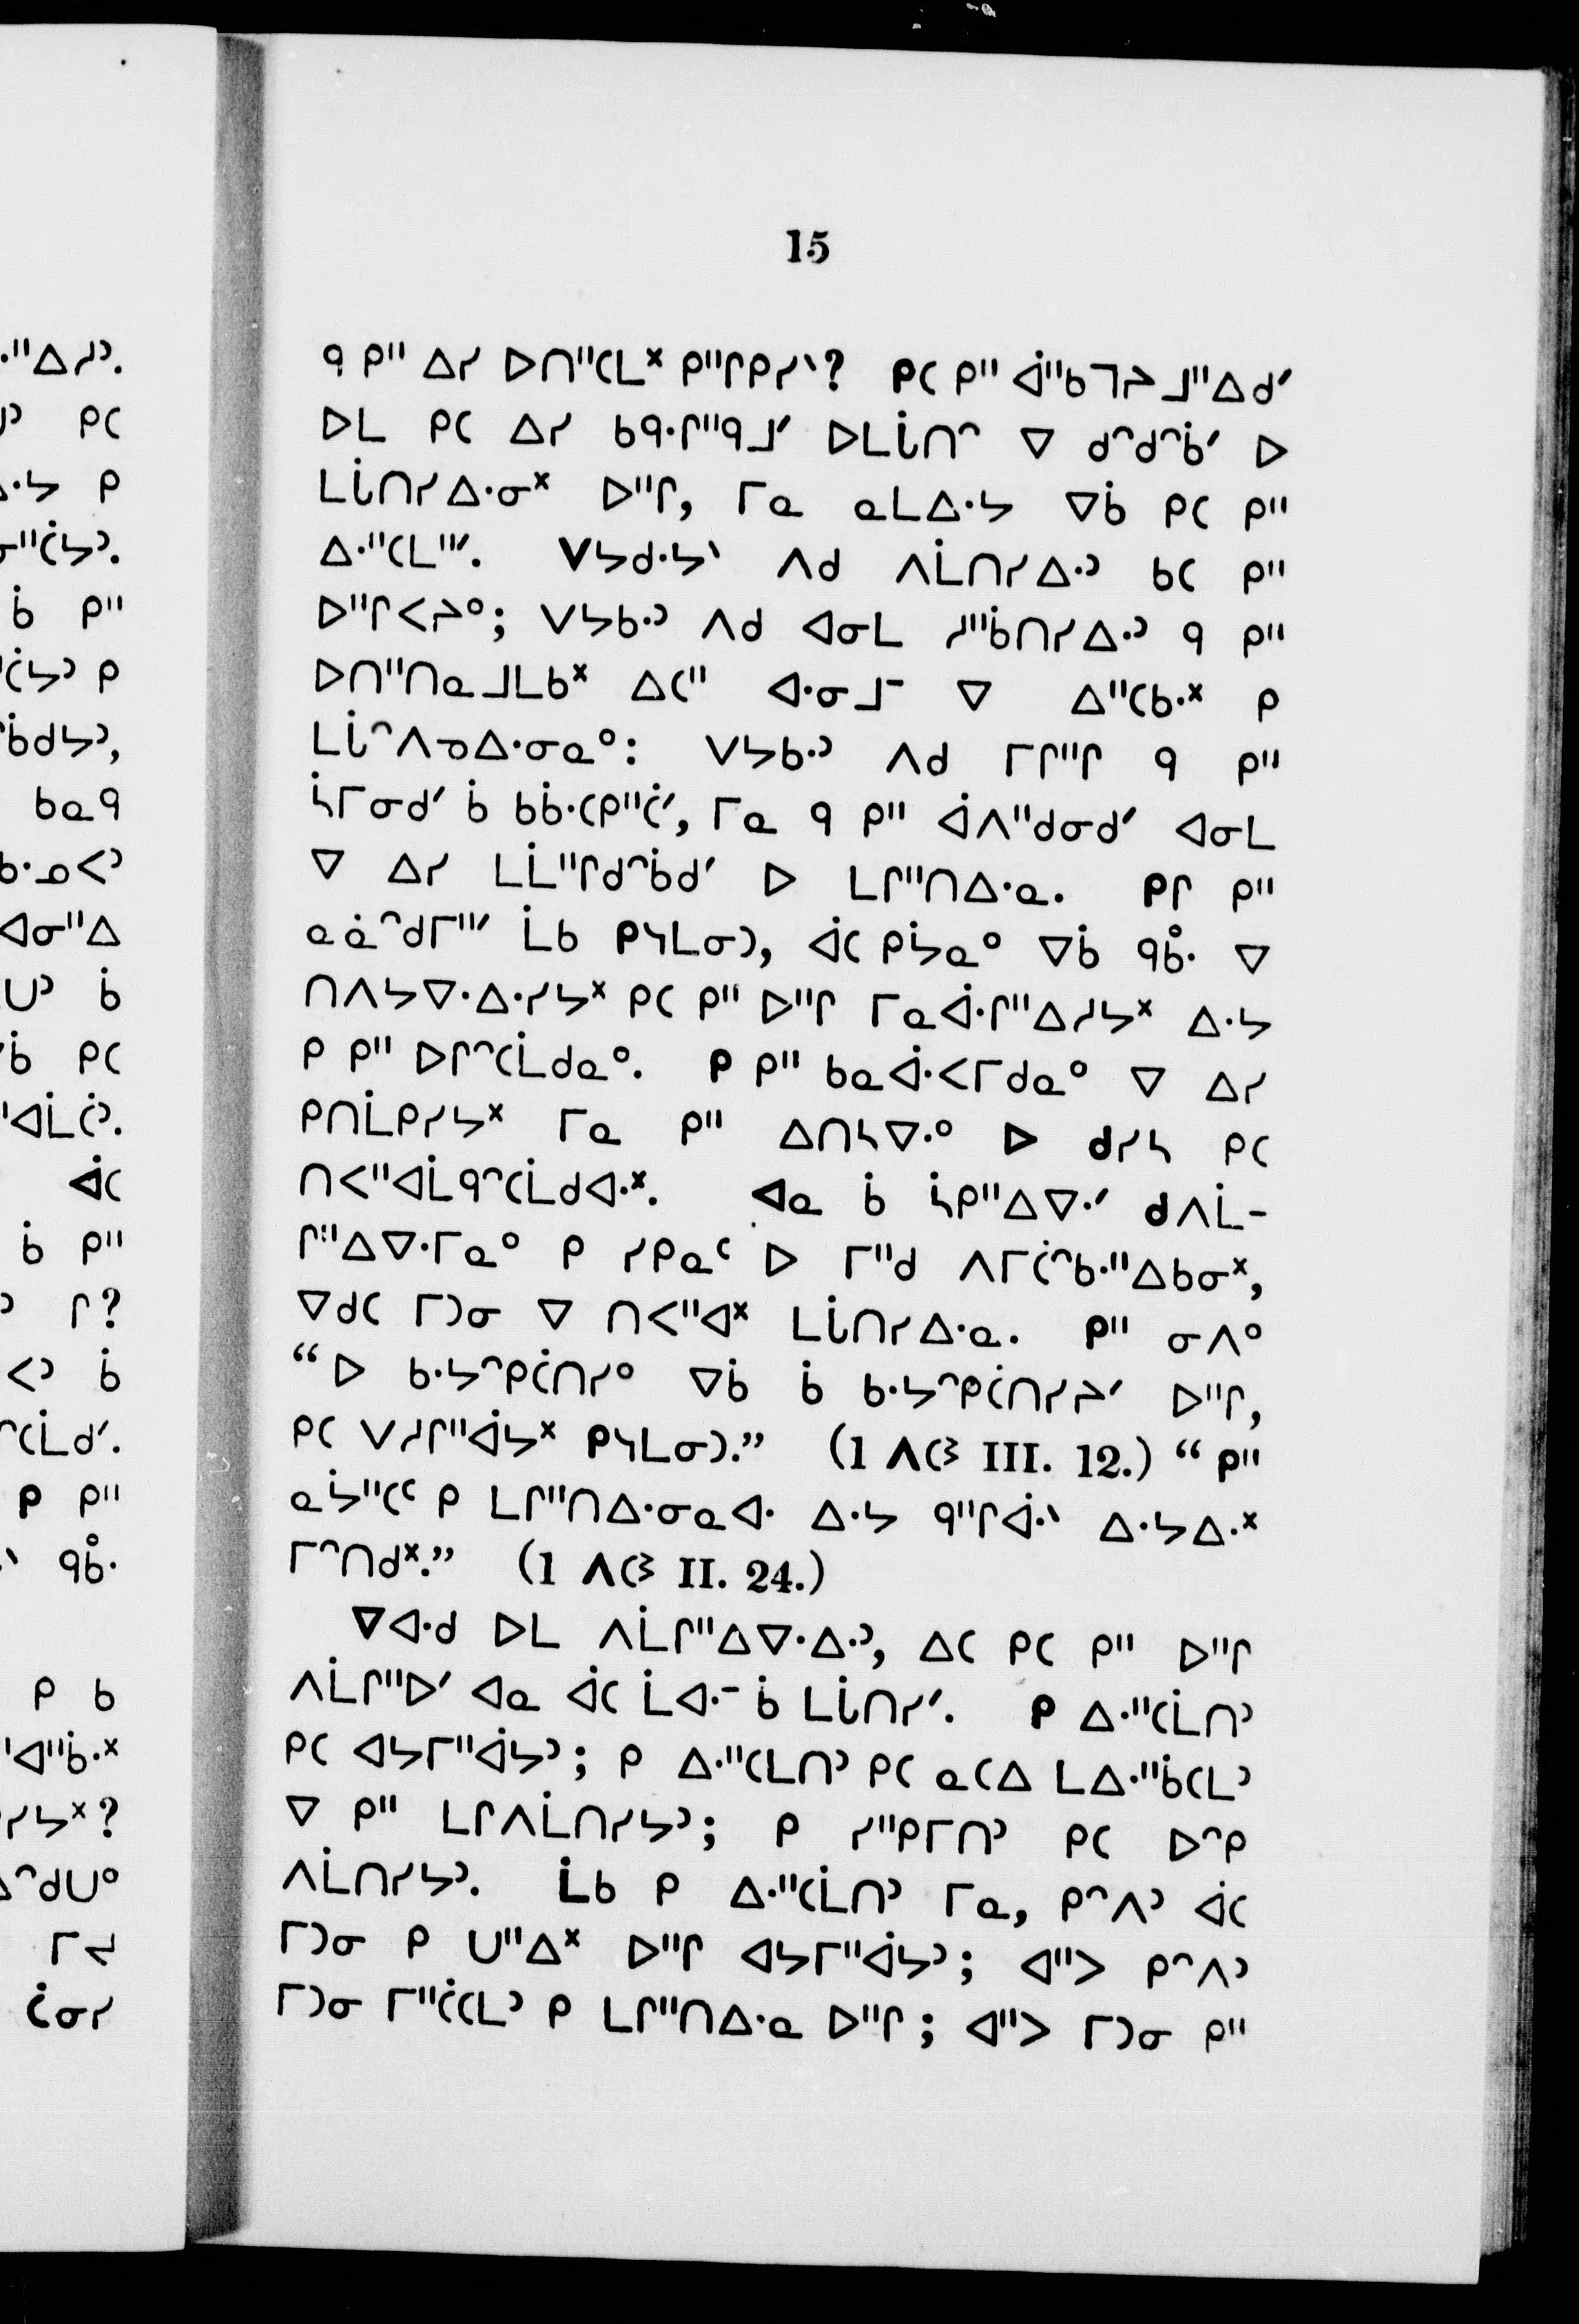 15
ᑫ ᑭᐦ ᐃᓯ ᐅᑎᐦᑕᒪᕽ ᑭᐦᒋᑭᓯᐠ? ᑭᑕ ᑭᐦ ᐋᐦᑲᒣᔨᒧᐦᐃᑯᐟ
ᐅᒪ ᑭᑕ ᐃᓯ ᑲᑫᐧᒋᐦᑫᒧᐟ ᐅᒪᒑᑎᐢ ᐁ ᑯᐢᑯᐢᑳᐟ ᐅ
ᒪᒑᑎᓯᐃᐧᓂᕽ ᐅᐦᒋ, ᒥᓇ ᓇᒪᐃᐧᔭ ᐁᑳ ᑭᑕ ᑭᐦ
ᐃᐧᐦᑕᒪᐦᐟ. ᐯᔭᑯᐧᔭᐠ ᐱᑯ ᐱᒫᑎᓯᐃᐧᐣ ᑲᑕ ᑭᐦ
ᐅᐦᒋᐸᔨᐤ; ᐯᔭᑲᐧᐣ ᐱᑯ ᐊᓂᒪ ᓱᐦᑳᑎᓯᐃᐧᐣ ᑫ ᑭᐦ
ᐅᑎᐦᑎᓇᒧᒪᑲᕽ ᐃᑕᐦ ᐊᐧᓂᒧᐨ ᐁ ᐃᐦᑕᑲᐧᕽ ᑭ
ᒪᒑᐢᐱᓀᐃᐧᓂᓇᐤ: ᐯᔭᑲᐧᐣ ᐱᑯ ᒥᒋᐦᒋ ᑫ ᑭᐦ
ᓵᒥᓂᑯᐟ ᑳ ᑲᑳᐧᑕᑭᐦᑖᐟ, ᒥᓇ ᑫ ᑭᐦ ᐋᐱᐦᑯᓂᑯᐟ ᐊᓂᒪ
ᐁ ᐃᓯ ᒪᒫᐦᒋᑯᐢᑳᑯᐟ ᐅ ᒪᒋᐦᑎᐃᐧᓇ. ᑭᒋ ᑭᐦ
ᓇᓈᐢᑯᒥᐦᐟ ᒫᑲ ᑭᓴᒪᓂᑐ, ᐋᑕ ᑭᔮᓇᐤ ᐁᑳ ᑫᑳᐧᐤ ᐁ
ᑎᐱᔭᐁᐧᐃᐧᓯᔭᕽ ᑭᑕ ᑭᐦ ᐅᐦᒋ ᒥᓇᐋᐧᒋᐦᐃᓱᔭᕽ ᐃᐧᔭ
ᑭ ᑭᐦ ᐅᒋᐢᑕᒫᑯᓇᐤ. ᑭ ᑭᐦ ᑲᓇᐋᐧᐸᒥᑯᓇᐤ ᐁ ᐃᓯ
ᑭᑎᒫᑭᓯᔭᕽ ᒥᓇ ᑭᐦ ᐃᑎᓴᐁᐧᐤ ᐅ ᑯᓯᓴ ᑭᑕ
ᑎᐸᐦᐊᒫᑫᐢᑕᒫᑯᐊᐧᕽ. ᐊᓇ ᑳ ᓵᑭᐦᐃᐁᐧᐟ ᑯᐱᒫ-
ᒋᐦᐃᐁᐧᒥᓇᐤ ᑭ ᓯᑭᓇᑦ ᐅ ᒥᐦᑯ ᐱᒥᑖᐢᑲᐧᐦᐃᑲᓂᕽ,
ᐁᑯᑕ ᒥᑐᓂ ᐁ ᑎᐸᐦᐊᕽ ᒪᒑᑎᓯᐃᐧᓇ. ᑭᐦ ᓂᐱᐤ
“ᐅ ᑲᐧᔭᐢᑭᑖᑎᓯᐤ ᐁᑳ ᑳ ᑲᐧᔭᐢᑭᑖᑎᓯᔨᐟ ᐅᐦᒋ,
ᑭᑕ ᐯᓱᒋᐦᐋᔭᕽ ᑭᓴᒪᓂᑐ.” (1 ᐱᑕᕒ III. 12.) “ ᑭᐦ
ᓇᔮᐦᑕᑦ ᑭ ᒪᒋᐦᑎᐃᐧᓂᓇᐊᐧ ᐃᐧᔭ ᑫᐦᒋᐋᐧᐠ ᐃᐧᔭᐃᐧᕽ
ᒥᐢᑎᑯᕽ.” (1 ᐱᑕᕒ II. 24.)
ᐁᐊᐧᑯ ᐅᒪ ᐱᒫᒋᐦᐃᐁᐧᐃᐧᐣ, ᐃᑕ ᑭᑕ ᑭᐦ ᐅᐦᒋ
ᐱᒫᒋᐦᐅᐟ ᐊᓇ ᐋᑕ ᒫᐊᐧᐨ ᑳ ᒪᒑᑎᓯᐟ. ᑭ ᐃᐧᐦᑕᒫᑎᐣ
ᑭᑕ ᐊᔭᒥᐦᐋᔭᐣ; ᑭ ᐃᐧᐦᑕᒪᑎᐣ ᑭᑕ ᓇᑕᐃ ᒪᐃᐧᐦᑳᑕᒪᐣ
ᐁ ᑭᐦ ᒪᒋᐱᒫᑎᓯᔭᐣ; ᑭ ᓯᐦᑭᒥᑎᐣ ᑭᑕ ᐅᐢᑭ
ᐱᒫᑎᓯᔭᐣ. ᒫᑲ ᑭ ᐃᐧᐦᑕᒫᑎᐣ ᒥᓇ, ᑭᐢᐱᐣ ᐋᑕ
ᒥᑐᓂ ᑭ ᑌᐦᐃᕽ ᐅᐦᒋ ᐊᔭᒥᐦᐋᔭᐣ; ᐊᐦᐳ ᑭᐢᐱᐣ
ᒥᑐᓂ ᒥᐦᑖᑕᒪᐣ ᑭ ᒪᒋᐦᑎᐃᐧᓇ ᐅᐦᒋ; ᐊᐦᐳ ᒥᑐᓂ ᑭᐦ